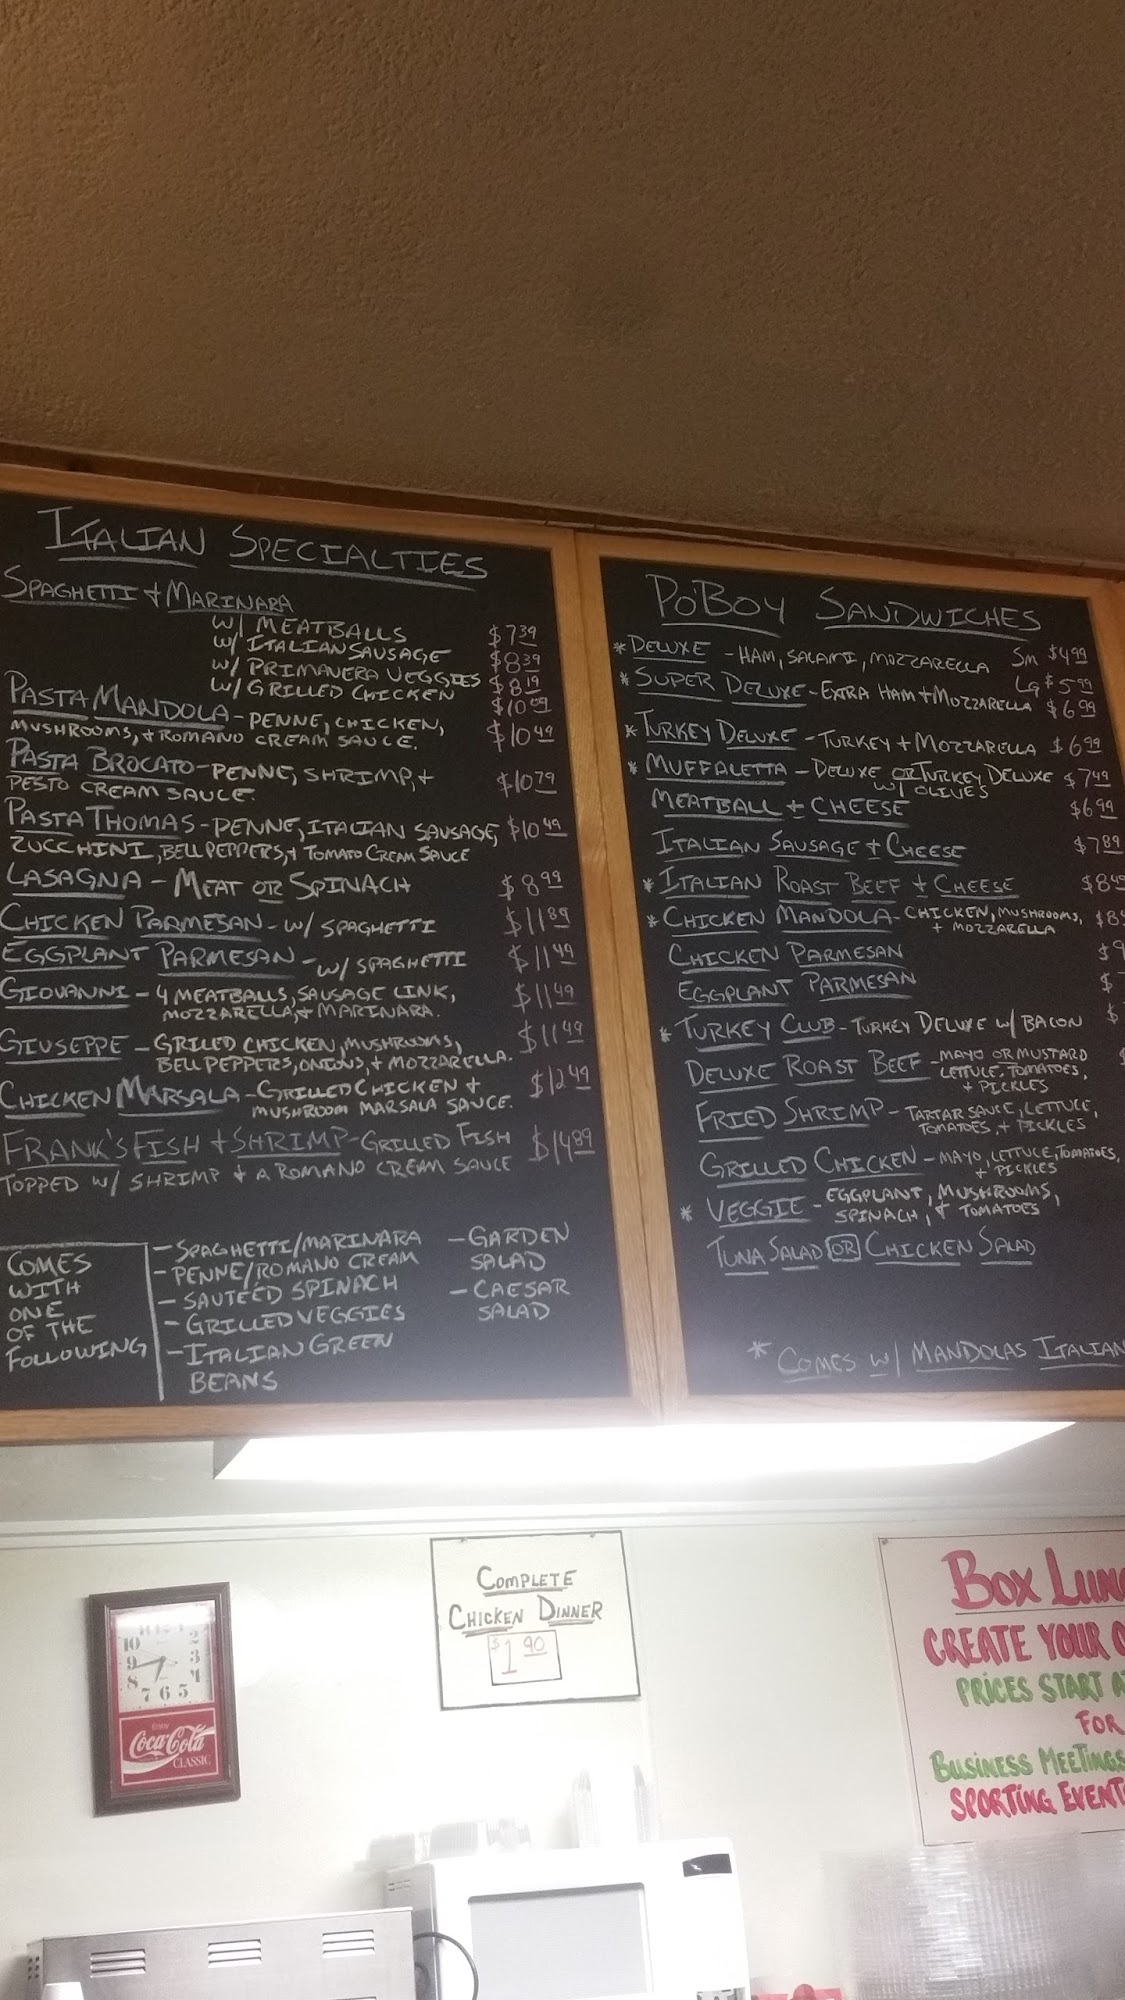 ITALIAN SPECIALTIES
SPAGHETTI + MARINARA
W/ MEATBALLS $7.39
W/ ITALIAN SAUSAGE $8.39
W/ PRIMAVERA VEGGIES $8.19
W/ GRILLED CHICKEN
PASTA MANDOLA - PENNE, CHICKEN, $10.49
MUSHROOMS, + ROMANO CREAM SAUCE.
PASTA BROCATO - PENNE, SHRIMP, + $10.79
PESTO CREAM SAUCE.
PASTA THOMAS - PENNE, ITALIAN SAUSAGE, $10.49
ZUCCHINI, BELL PEPPERS, + TOMATO CREAM SAUCE
LASAGNA - MEAT OR SPINACH $8.99
CHICKEN PARMESAN - W/ SPAGHETTI $11.89
EGGPLANT PARMESAN - W/ SPAGHETTI $11.49
GIOVANNI - 4 MEATBALLS, SAUSAGE LINK, $11.49
MOZZARELLA, + MARINARA.
GIUSEPPE - GRILLED CHICKEN, MUSHROOMS, $11.49
BELL PEPPERS, ONIONS, + MOZZARELLA.
CHICKEN MARSALA - GRILLED CHICKEN + $12.49
MUSHROOM MARSALA SAUCE.
FRANK'S FISH + SHRIMP - GRILLED FISH $14.89
TOPPED W/ SHRIMP + A ROMANO CREAM SAUCE
COMES
WITH
ONE
OF THE
FOLLOWING
- SPAGHETTI/MARINARA
- PENNE/ROMANO CREAM
- SAUTEÉD SPINACH
- GRILLED VEGGIES
- ITALIAN GREEN
BEANS
- GARDEN
SALAD
- CAESAR
SALAD
PO'BOY SANDWICHES
* DELUXE - HAM, SALAMI, MOZZARELLA Sm $4.99
Lg $5.99
* SUPER DELUXE - EXTRA HAM + MOZZARELLA $6.99
* TURKEY DELUXE - TURKEY + MOZZARELLA $6.99
* MUFFALETTA - DELUXE OR TURKEY DELUXE $7.49
W/ OLIVES
MEATBALL + CHEESE $6.99
ITALIAN SAUSAGE + CHEESE $7.89
* ITALIAN ROAST BEEF + CHEESE $8.49
* CHICKEN MANDOLA - CHICKEN, MUSHROOMS, $8
+ MOZZARELLA
CHICKEN PARMESAN $9
EGGPLANT PARMESAN $
* TURKEY CLUB - TURKEY DELUXE W/ BACON $
DELUXE ROAST BEEF - MAYO OR MUSTARD $
LETTUCE, TOMATOES,
+ PICKLES
FRIED SHRIMP - TARTAR SAUCE, LETTUCE,
TOMATOES, + PICKLES
GRILLED CHICKEN - MAYO, LETTUCE, TOMATOES,
+ PICKLES
* VEGGIE - EGGPLANT, MUSHROOMS,
SPINACH, + TOMATOES
TUNA SALAD OR CHICKEN SALAD
* COMES W/ MANDOLAS ITALIAN
COMPLETE
CHICKEN DINNER
$1.90
BOX LUN
CREATE YOUR O
PRICES START A
FOR
BUSINESS MEETINGS
SPORTING EVENT
10 9 8 7 6 5 4 3 2
Enjoy
Coca-Cola
CLASSIC